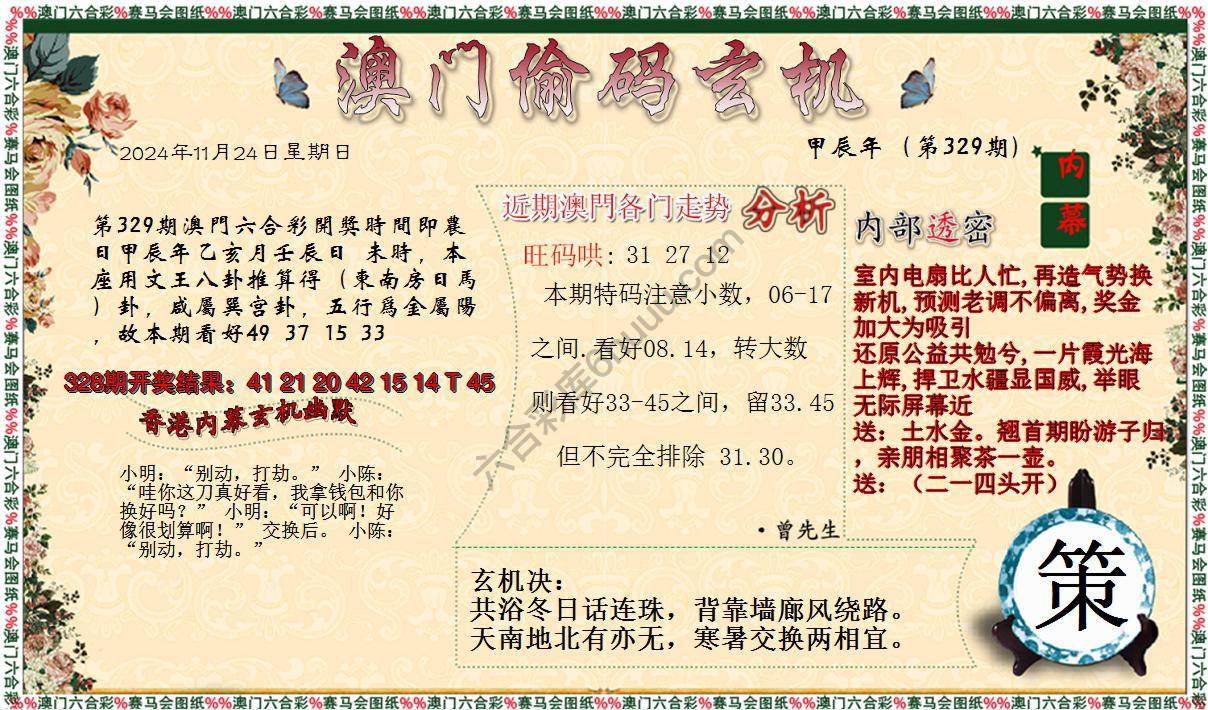 %%澳门六合彩%赛马会图纸%%澳门六合彩%赛马会图纸%%澳门六合彩%赛马会图纸%%澳门六合彩%赛马会图纸%%澳门六合彩%赛马会图纸%%澳门六合彩%赛马会图纸%%
澳门偷码玄机
2024年11月24日星期日
甲辰年（第329期）
内幕
第329期澳門六合彩開獎時間即農
日甲辰年乙亥月壬辰日 未時，本
座用文王八卦推算得（東南房日馬
）卦，咸屬巽宫卦，五行爲金屬陽
，故本期看好49 37 15 33
328期开奖结果：41 21 20 42 15 14 T 45
香港内幕玄机幽默
小明：“别动，打劫。” 小陈：
“哇你这刀真好看，我拿钱包和你
换好吗？” 小明：“可以啊！好
像很划算啊！” 交换后。 小陈：
“别动，打劫。”
近期澳門各门走势 分析
旺码哄: 31 27 12
本期特码注意小数，06-17
之间.看好08.14，转大数
则看好33-45之间，留33.45
但不完全排除 31.30。
·曾先生
内部透密
室内电扇比人忙,再造气势换
新机,预测老调不偏离,奖金
加大为吸引
还原公益共勉兮,一片霞光海
上辉,捍卫水疆显国威,举眼
无际屏幕近
送：土水金。翘首期盼游子归
，亲朋相聚茶一壶。
送：（二一四头开）
玄机决：
共浴冬日话连珠，背靠墙廊风绕路。
天南地北有亦无，寒暑交换两相宜。
策
%%澳门六合彩%赛马会图纸%%澳门六合彩%赛马会图纸%%澳门六合彩%赛马会图纸%%澳门六合彩%赛马会图纸%%澳门六合彩%赛马会图纸%%澳门六合彩%赛马会图纸%%